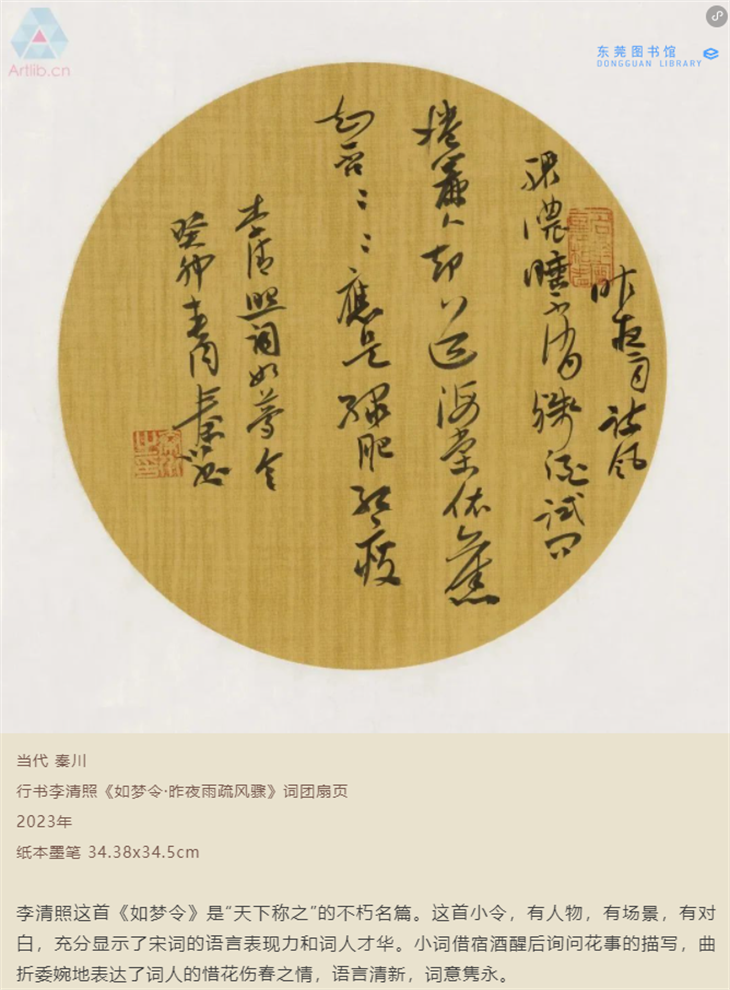 Artlib.cn
东莞图书馆
DONGGUAN LIBRARY
昨夜雨疏风
骤浓睡不消残酒试问
捲簾人却道海棠依舊
知否〻〻應是绿肥红瘦
李清照词如夢令
癸卯春月
当代 秦川
行书李清照《如梦令·昨夜雨疏风骤》词团扇页
2023年
纸本墨笔 34.38x34.5cm
李清照这首《如梦令》是“天下称之”的不朽名篇。这首小令，有人物，有场景，有对
白，充分显示了宋词的语言表现力和词人才华。小词借宿酒醒后询问花事的描写，曲
折委婉地表达了词人的惜花伤春之情，语言清新，词意隽永。